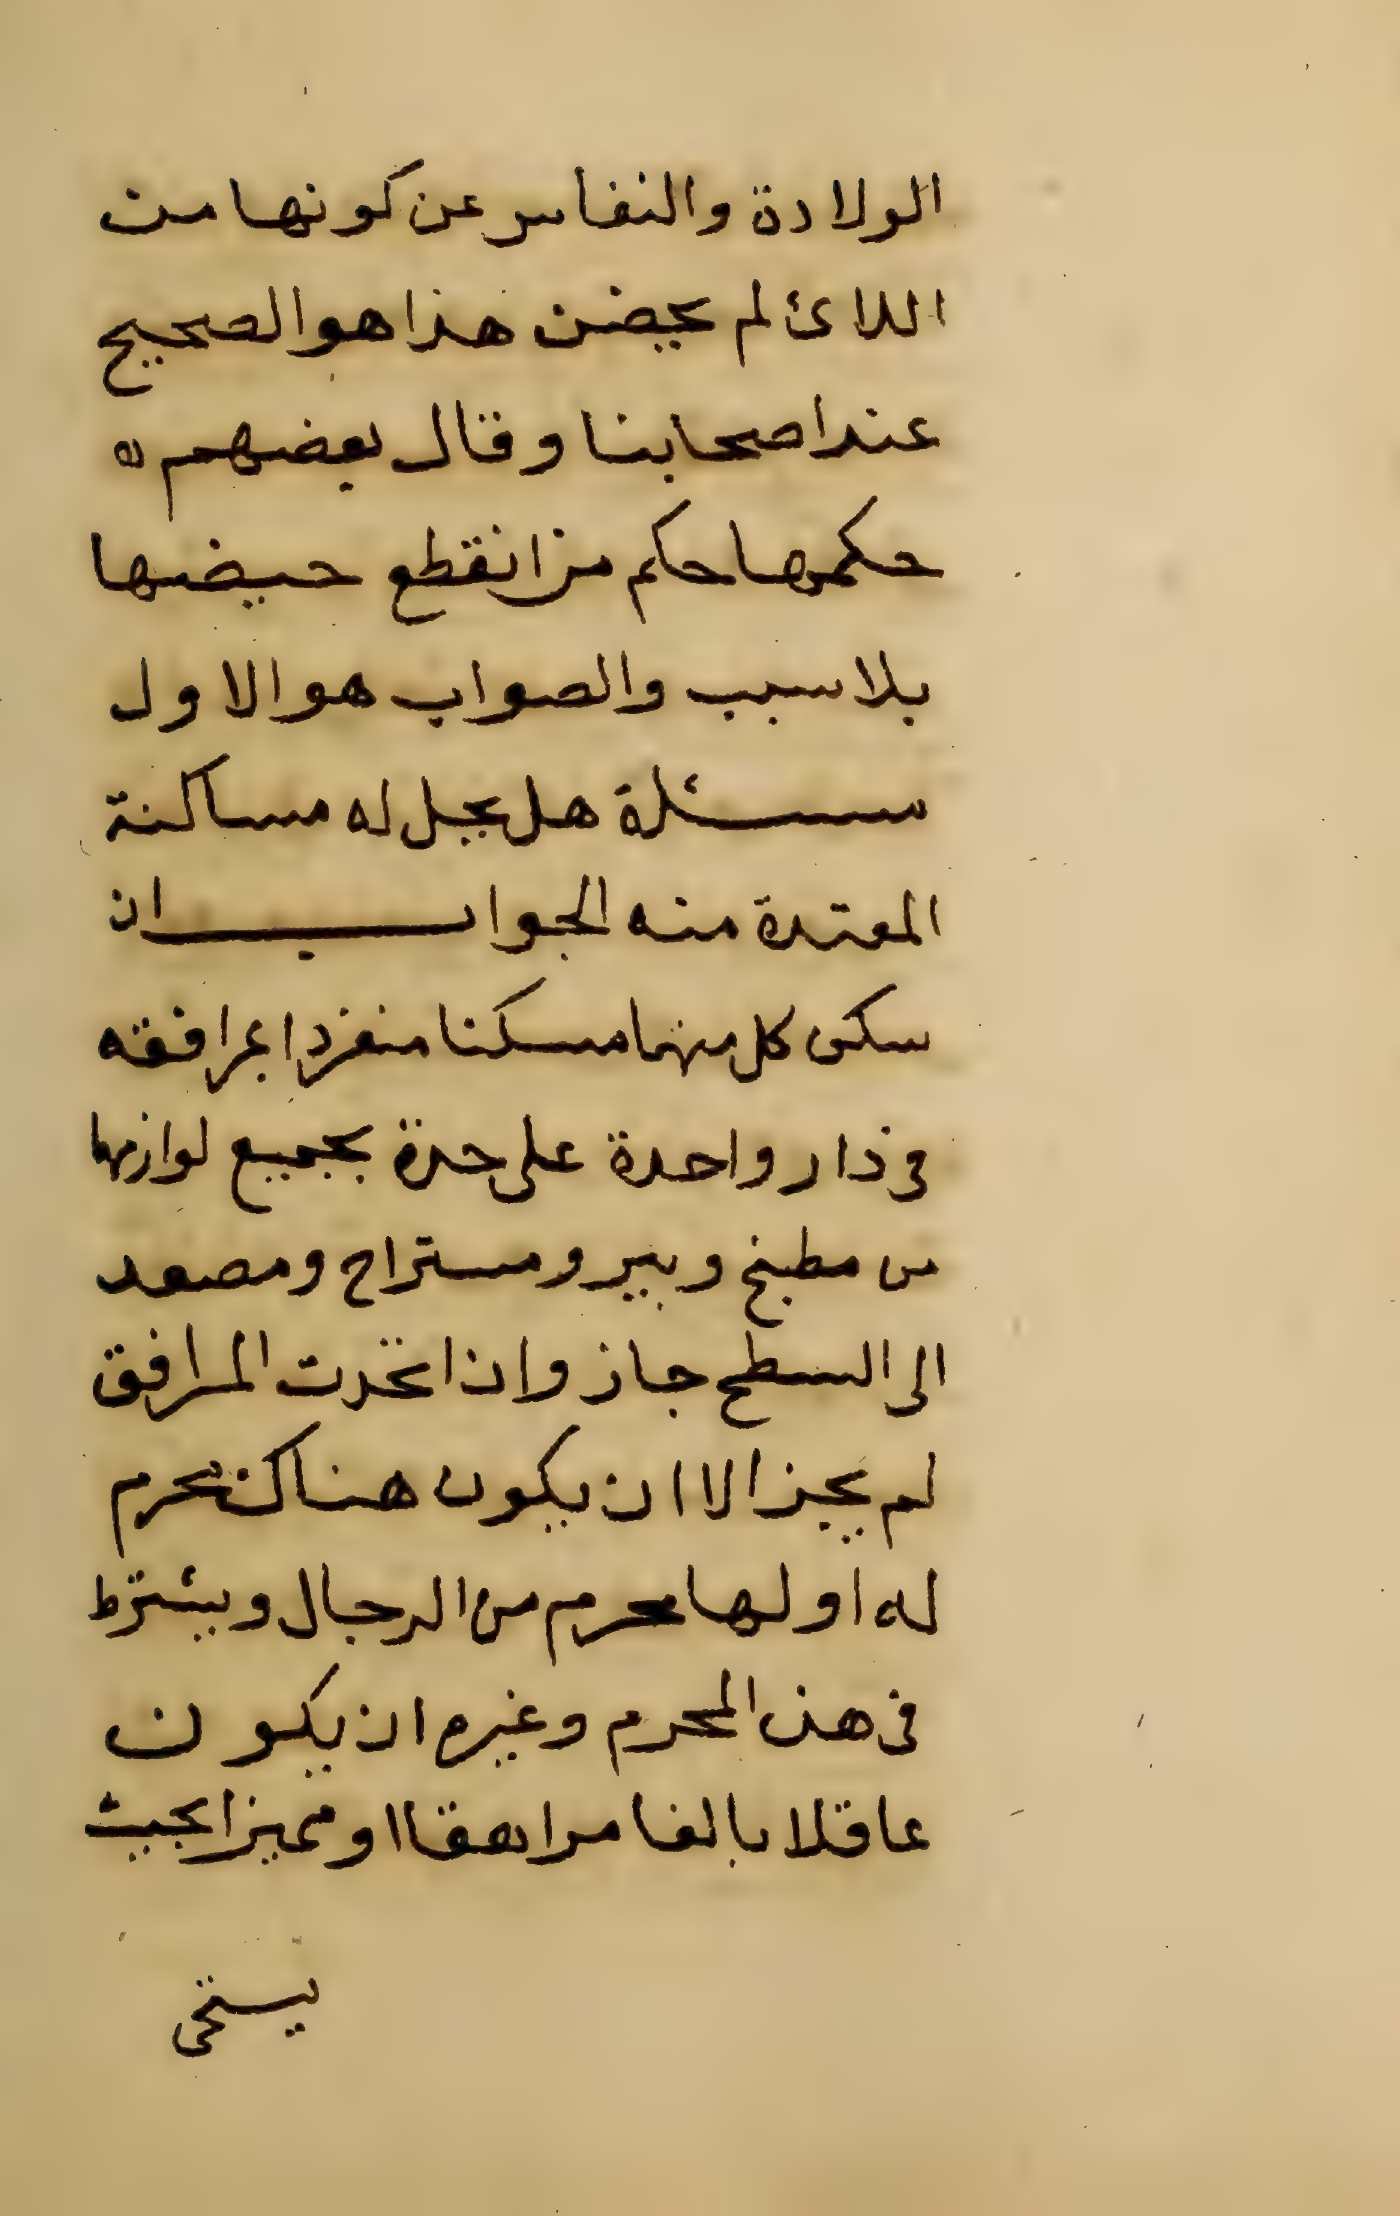 الولادة والنفاس عن كونها من
اللائ لم يحضن هذا هو الصحيح
عند اصحابنا وقال بعضهم
حكمها حكم من انقطع حيضها
بلا سبب والصواب هو الاول
مسئلة هل يحل له مساكنة
المعتدة منه الجواب ان
سكن كل منهما مسكنا منفردا بمرافقه
فى دار واحدة على حدة بجميع لوازمها
من مطبخ وبير ومستراح ومصعد
الى السطح جاز وان اتحدت المرافق
لم يجز الا ان يكون هناك محرم
له او لها محرم من الرجال ويشترط
فى هذ المحرم وغيره ان يكون
عاقلا بالغا مراهقا او مميزا بحيث
يستحى